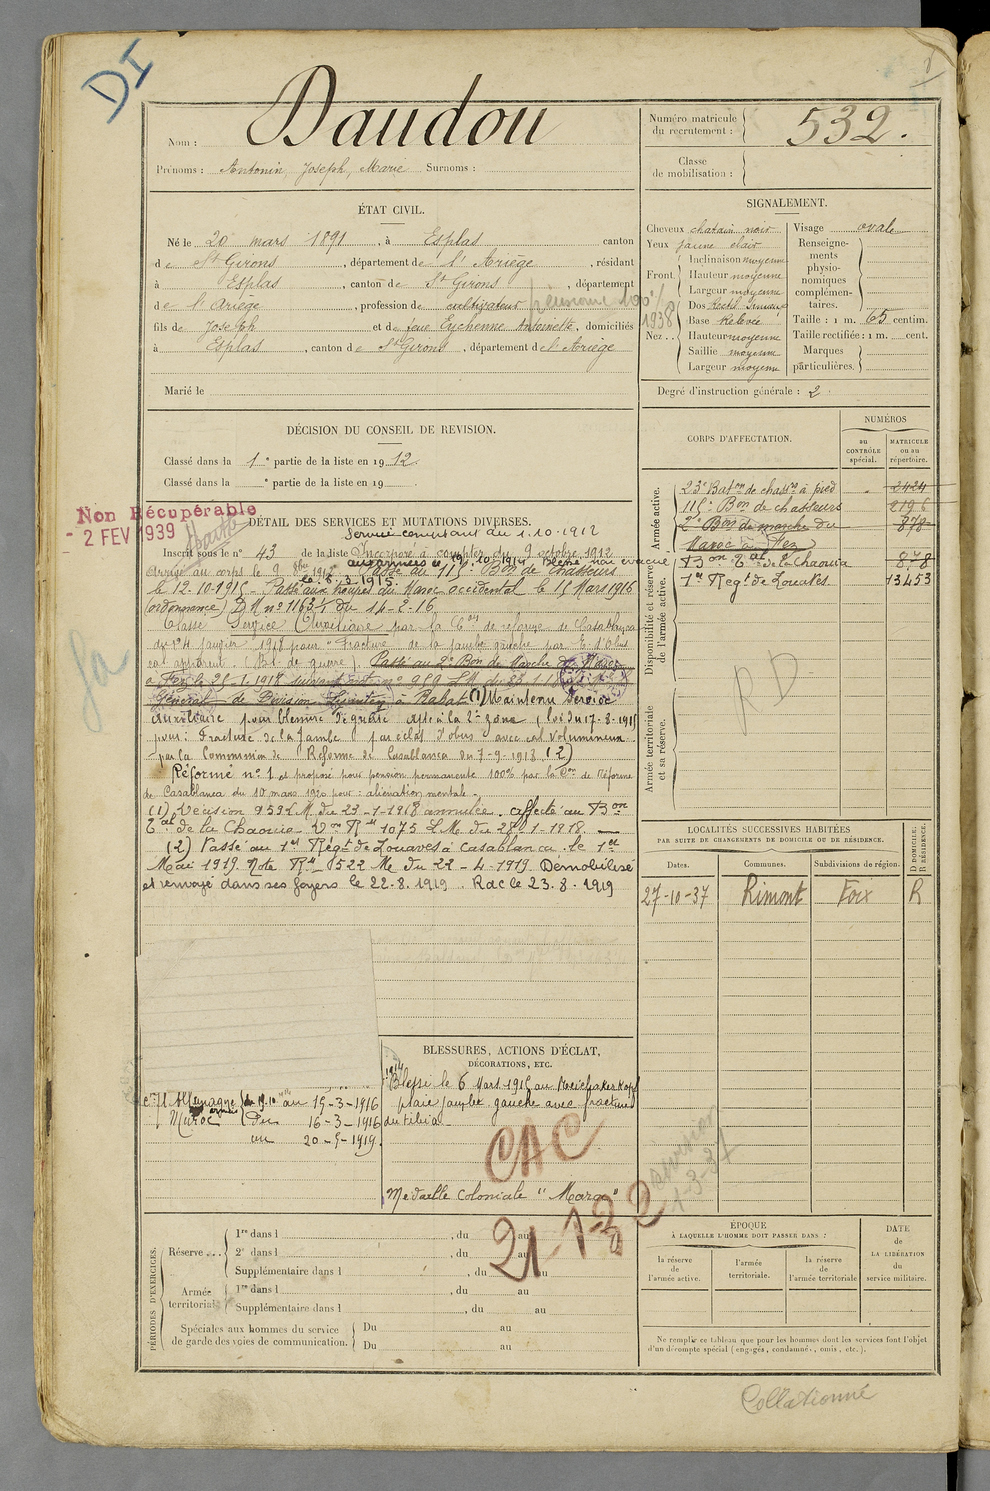 DI
Nom : Daudou
Prénoms : Antonin, Joseph, Marie Surnoms :
Numéro matricule du recrutement : 532.
Classe de mobilisation :
ÉTAT CIVIL.
Né le 20 mars 1891, à Esplas canton
de St Girons, département de l'Ariège, résidant
à Esplas, canton de St Girons, département
de l'Ariège, profession de cultivateur pensionné 100%
1938
fils de Joseph et de feue Eychenne Antoinette, domiciliés
à Esplas, canton de St Girons, département de l'Ariège
Marié le
SIGNALEMENT.
Cheveux chatain noir
Yeux jaune clair
Front. Inclinaison moyenne
Hauteur moyenne
Largeur moyenne
Nez.. Dos
Base Relevée
Hauteur moyenne
Saillie moyenne
Largeur moyenne
Visage ovale
Renseignements physionomiques complémentaires.
Taille : 1 m. 65 centim.
Taille rectifiée : 1 m. cent.
Marques particulières.
Degré d'instruction générale : 2
DÉCISION DU CONSEIL DE REVISION.
Classé dans la 1e partie de la liste en 1912.
Classé dans la e partie de la liste en 19
CORPS D'AFFECTATION.
NUMÉROS
au CONTRÔLE spécial.
MATRICULE ou au répertoire.
Armée active.
23e Baton de chass. à pied 2424
115e Bon de chasseurs 2196
2e Bon de marche du 878
Maroc à Fez
Disponibilité et réserve de l'armée active.
Bon Tal de la Chaouia 878
1er Régt de Zouaves 13453
Armée territoriale et sa réserve.
RD
Non Récupérable
- 2 FEV 1939
DÉTAIL DES SERVICES ET MUTATIONS DIVERSES.
Service comptant du 1.10.1912
Inscrit sous le n° 43 de la liste Incorporé à compter du 9 octobre 1912
aux armées le 19.10.1914 Blessé non évacué
Arrivé au corps le 9 8bre 1912. Passé au 115e Bon de chasseurs
le 6.3.1915.
le 12-10-1915 - Passé aux troupes du Maroc occidental le 15 Mars 1916
(ordonnance) DM n° 1163 1/1 du 14-2-16
Classé Service Auxiliaire par la Con de réforme de Casablanca
du 4 janvier 1918 pour "Fracture de la jambe gauche par E. d'obus
cal apparent. (Bl. de guerre). Passé au 2e Bon de Marche du Maroc
à Fez le 25-1-1918 suivant note n° 959 LM du 23.1.18
Général de Division Lyautey à Rabat (1) Maintenu Service
Auxiliaire pour blessure de guerre apte à la 2e zone (loi du 17-8-1915
pour : Fracture de la Jambe par éclat d'obus avec cal volumineux
par la Commission de Réforme de Casablanca du 7-9-1918 (2)
Réformé n° 1 et proposé pour pension permanente 100% par la Con de Réforme
de Casablanca du 10 mars 1920 pour : aliénation mentale.
(1) Décision 959 L.M. du 23-1-1918 annulée. affecté au Bon
Tal de la Chaouia Von Rle 1075 LM. du 28-1-1918.
(2) Passé au 1er Régt de Zouaves à Casablanca le 1er
Mai 1919. Note Rle 8522 Me du 22-4-1919. Démobilisé
et renvoyé dans ses foyers le 22.8.1919. Rac le 23.8.1919
LOCALITÉS SUCCESSIVES HABITÉES
PAR SUITE DE CHANGEMENTS DE DOMICILE OU DE RÉSIDENCE.
Dates. Communes. Subdivisions de région. D DOMICILE. R RÉSIDENCE.
27-10-37 Rimont Foix R
Cne Allemagne du 19.10 au 15-3-1916
Maroc Du 16-3-1916
au 20-5-1919.
BLESSURES, ACTIONS D'ÉCLAT,
DÉCORATIONS, ETC.
Blessé le 6 Mars 1915 au Reichakerkopf
plaie jambe gauche avec fracture
du tibia
CAC
Médaille Coloniale "Maroc"
1-3-37
PÉRIODES D'EXERCICES.
Réserve... 1re dans l , du au
2e dans l , du au
Supplémentaire dans l , du au
Armée territoriale 1re dans l , du au
Supplémentaire dans l , du au
Spéciales aux hommes du service de garde des voies de communication. Du au
Du au
ÉPOQUE
À LAQUELLE L'HOMME DOIT PASSER DANS :
la réserve de l'armée active.
l'armée territoriale.
la réserve de l'armée territoriale
DATE DE LA LIBÉRATION du service militaire.
Ne remplir ce tableau que pour les hommes dont les services font l'objet
d'un décompte spécial (engagés, condamnés, omis, etc.).
Collationné